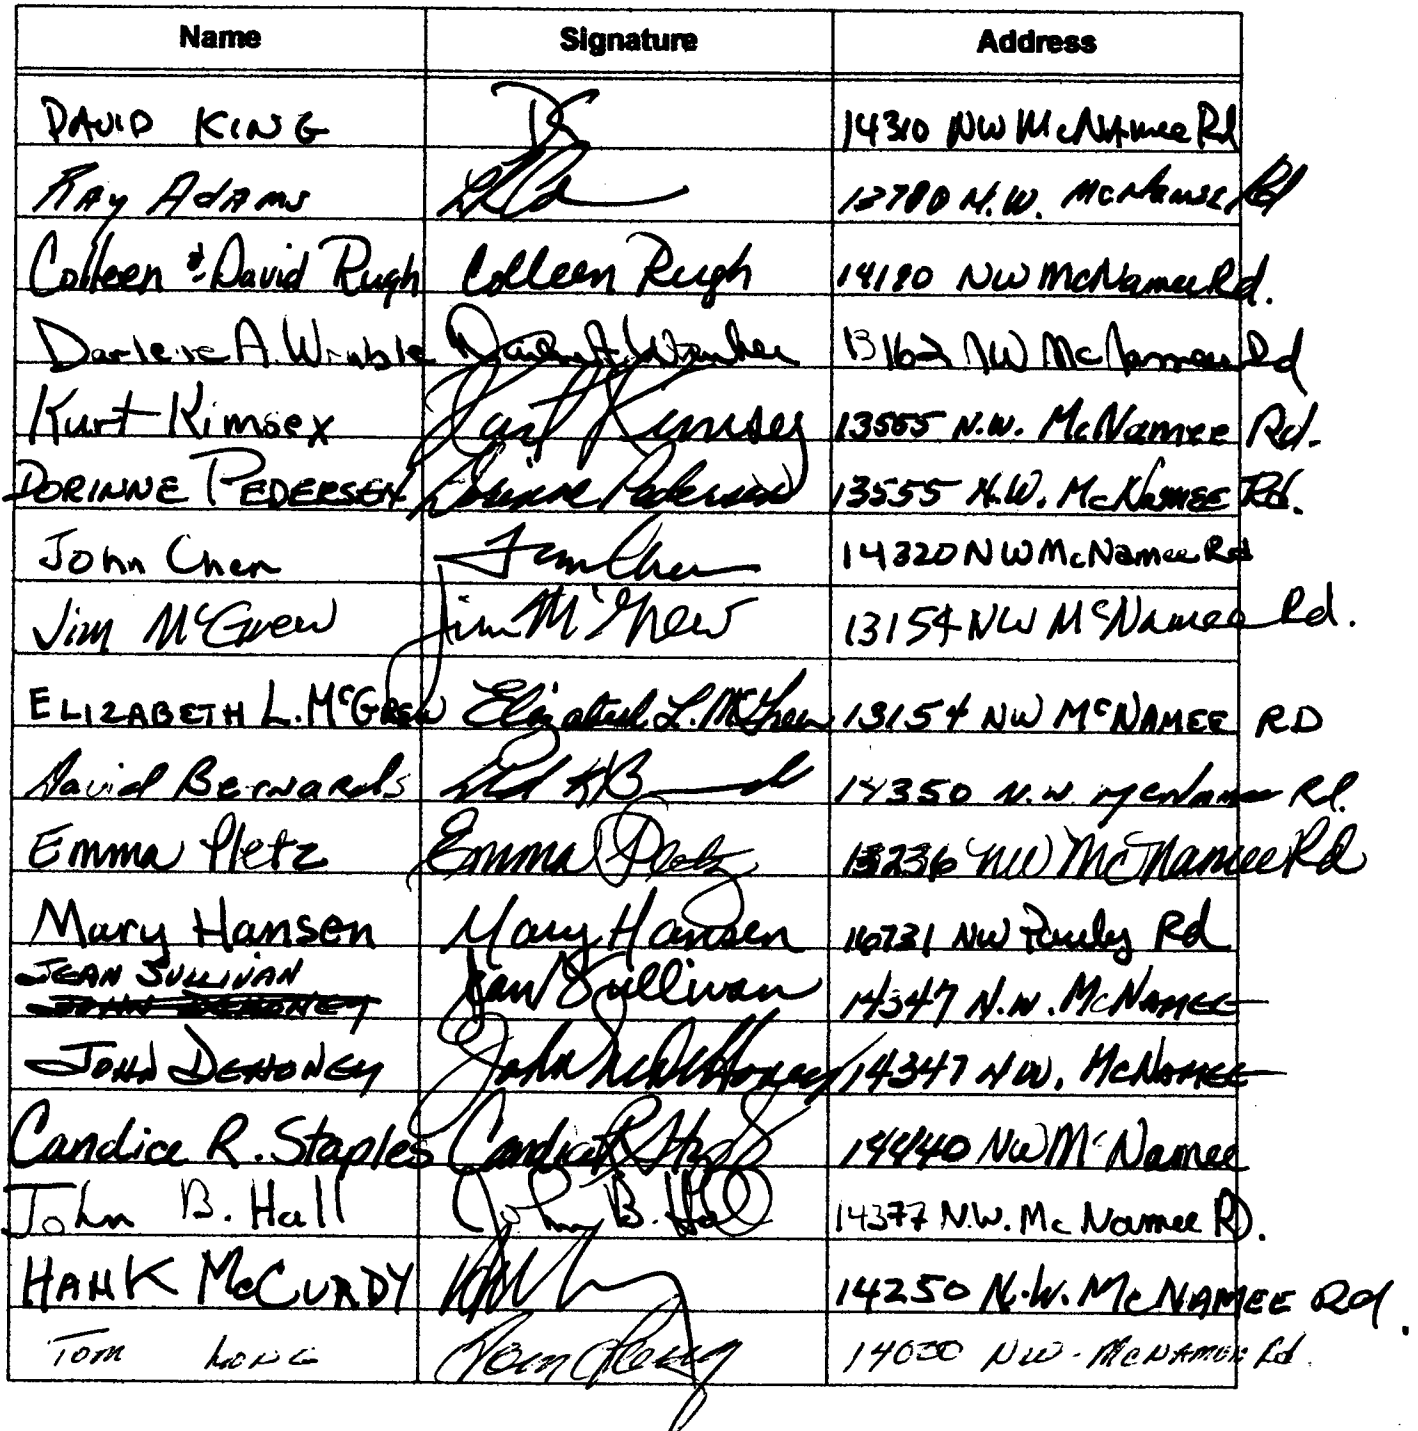 Name Signature Address
DAVID KING DK 14310 NW McNamee Rd
RAY ADAMS 13780 N.W. McNamee Rd
Colleen & David Rugh Colleen Rugh 14190 NW McNamee Rd.
Darlene A. Wimble Darlene A. 13162 NW McNamee Rd
Kurt Kimsey Kurt Kimsey 13555 N.W. McNamee Rd.
DORINNE PEDERSEN Dorinne Pedersen 13555 N.W. McNamee Rd.
John Chen 14320 NW McNamee Rd
Jim McGrew Jim McGrew 13154 NW McNamee Rd.
ELIZABETH L. McGREW Elizabeth L. McGrew 13154 NW McNAMEE RD
David Bernards 14350 N.W. McNamee Rd.
Emma Pletz Emma Pletz 13236 NW McNamee Rd
Mary Hansen Mary Hansen 16731 NW Pauly Rd
JEAN SULLIVAN Jean Sullivan 14347 N.W. McNAMEE
JOHN DEHONEY
JOHN DEHONEY John Dehoney 14347 N.W. McNAMEE
Candice R. Staples Candice R Staples 14440 NW McNamee
John B. Hall John B. Hall 14377 N.W. McNamee RD.
HANK McCURDY 14250 N.W. McNAMEE Rd.
TOM LONG Tom Long 14000 NW. McNAMEE Rd.